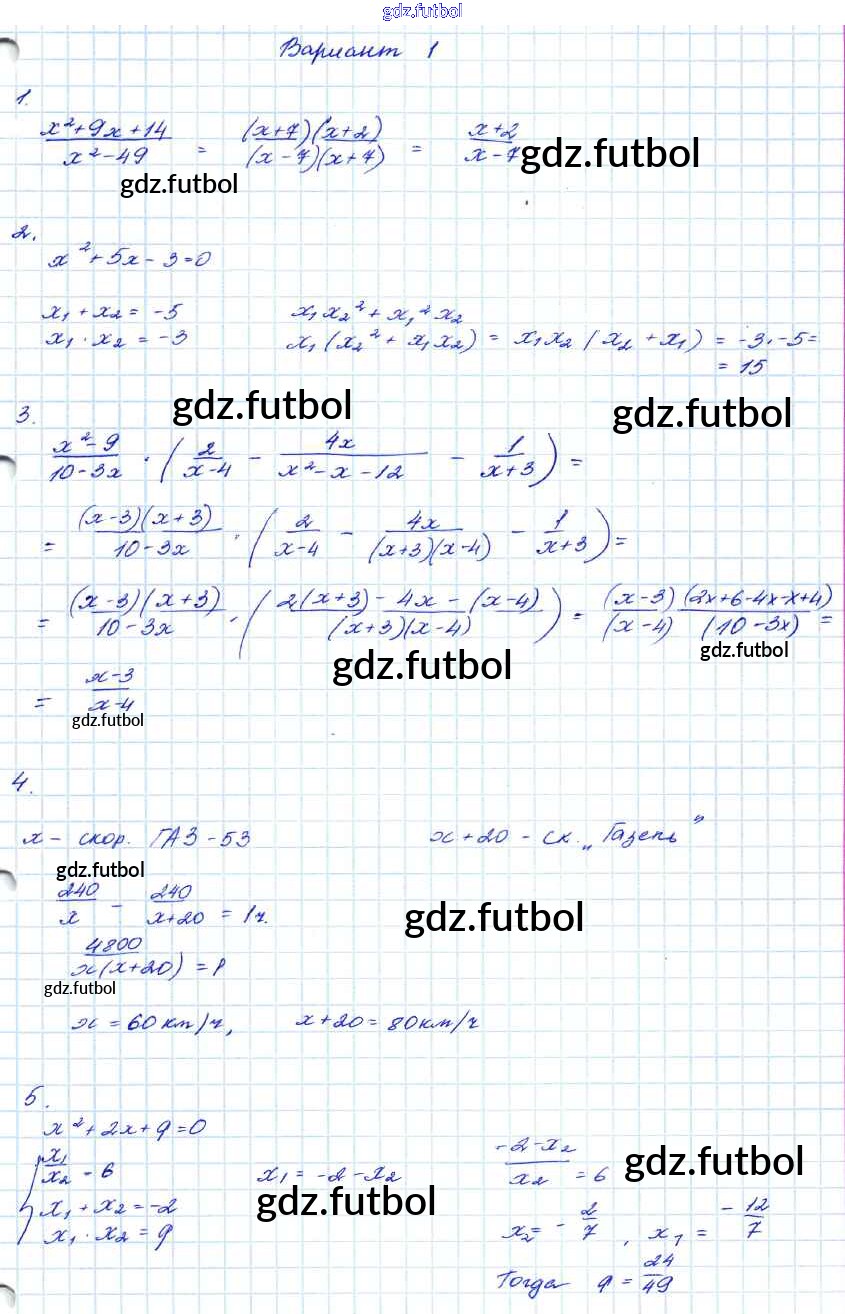 gdz.futbol
Вариант 1
1.
(x²+9x+14)/(x²-49) = ((x+7)(x+2))/((x-7)(x+7)) = (x+2)/(x-7)
gdz.futbol
gdz.futbol
2.
x²+5x-3=0
x₁+x₂=-5 x₁x₂²+x₁²x₂
x₁·x₂=-3 x₁(x₂²+x₁x₂) = x₁x₂(x₂+x₁) = -3·-5=
= 15
gdz.futbol
gdz.futbol
3.
(x²-9)/(10-3x) · (2/(x-4) - 4x/(x²-x-12) - 1/(x+3)) =
= ((x-3)(x+3))/(10-3x) · (2/(x-4) - 4x/((x+3)(x-4)) - 1/(x+3)) =
= ((x-3)(x+3))/(10-3x) · ((2(x+3)-4x-(x-4))/((x+3)(x-4))) = ((x-3)(2x+6-4x-x+4))/((x-4)(10-3x)) =
gdz.futbol
gdz.futbol
= (x-3)/(x-4)
gdz.futbol
4.
x - скор. ГАЗ-53 x+20 - ск. „Газель"
gdz.futbol
240/x - 240/(x+20) = 1ч.
gdz.futbol
4800/(x(x+20)) = 1
gdz.futbol
x = 60 км/ч, x+20 = 80 км/ч
5.
x²+2x+q=0
x₁/x₂ = 6 x₁ = -2-x₂ (-2-x₂)/x₂ = 6
gdz.futbol
gdz.futbol
x₁+x₂=-2
x₁·x₂=q x₂ = -2/7, x₁ = -12/7
Тогда q = 24/49